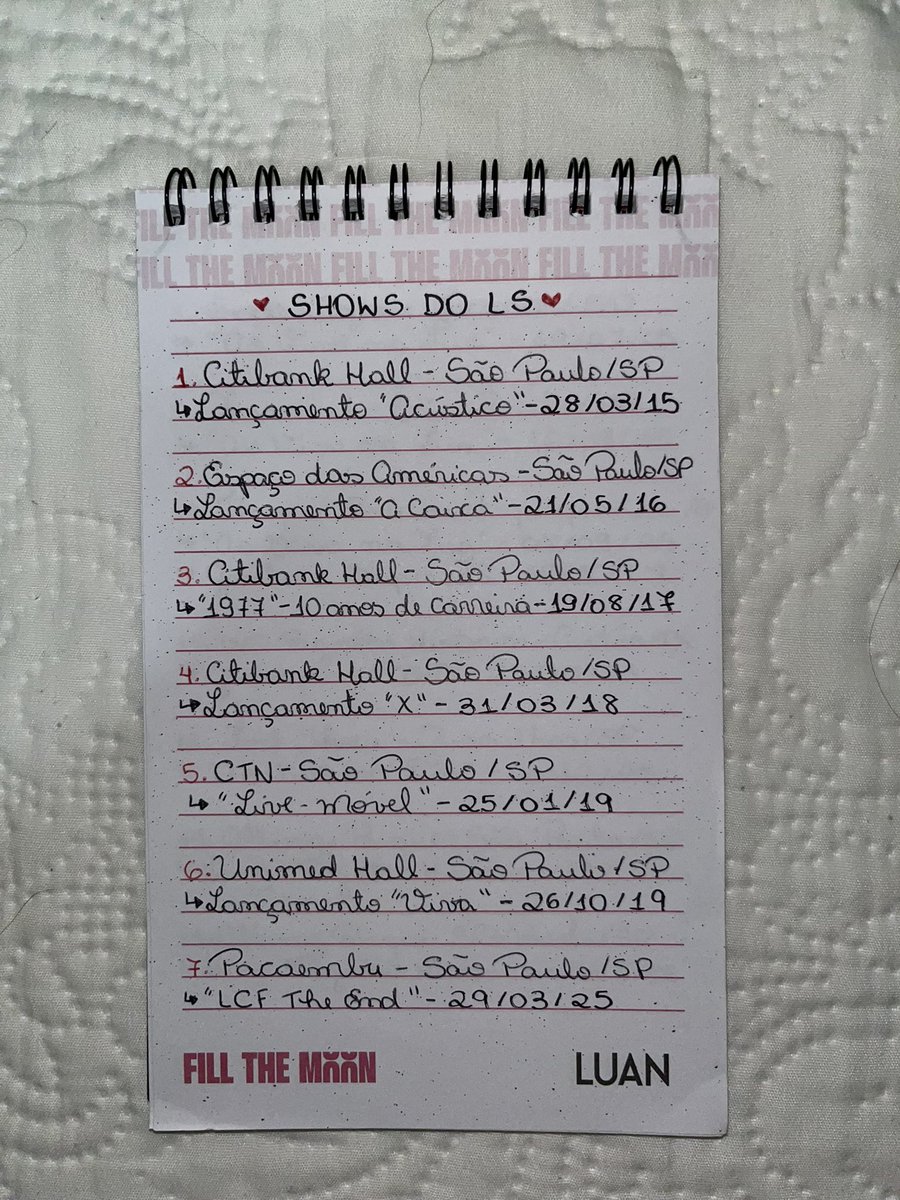 FILL THE MOON FILL THE MOON FILL THE MOON
FILL THE MOON FILL THE MOON FILL THE MOON
SHOWS DO LS
1. Citibank Hall - São Paulo/SP
↳Lançamento "Acústico" - 28/03/15
2. Espaço das Américas - São Paulo/SP
↳Lançamento "A Caixa" - 21/05/16
3. Citibank Hall - São Paulo/SP
↳"1977" - 10 anos de carreira - 19/08/17
4. Citibank Hall - São Paulo/SP
↳Lançamento "X" - 31/03/18
5. CTN - São Paulo/SP
↳"Live-Móvel" - 25/01/19
6. Unimed Hall - São Paulo/SP
↳Lançamento "Viva" - 26/10/19
7. Pacaembu - São Paulo/SP
↳"LCF The End" - 29/03/25
FILL THE MOON LUAN